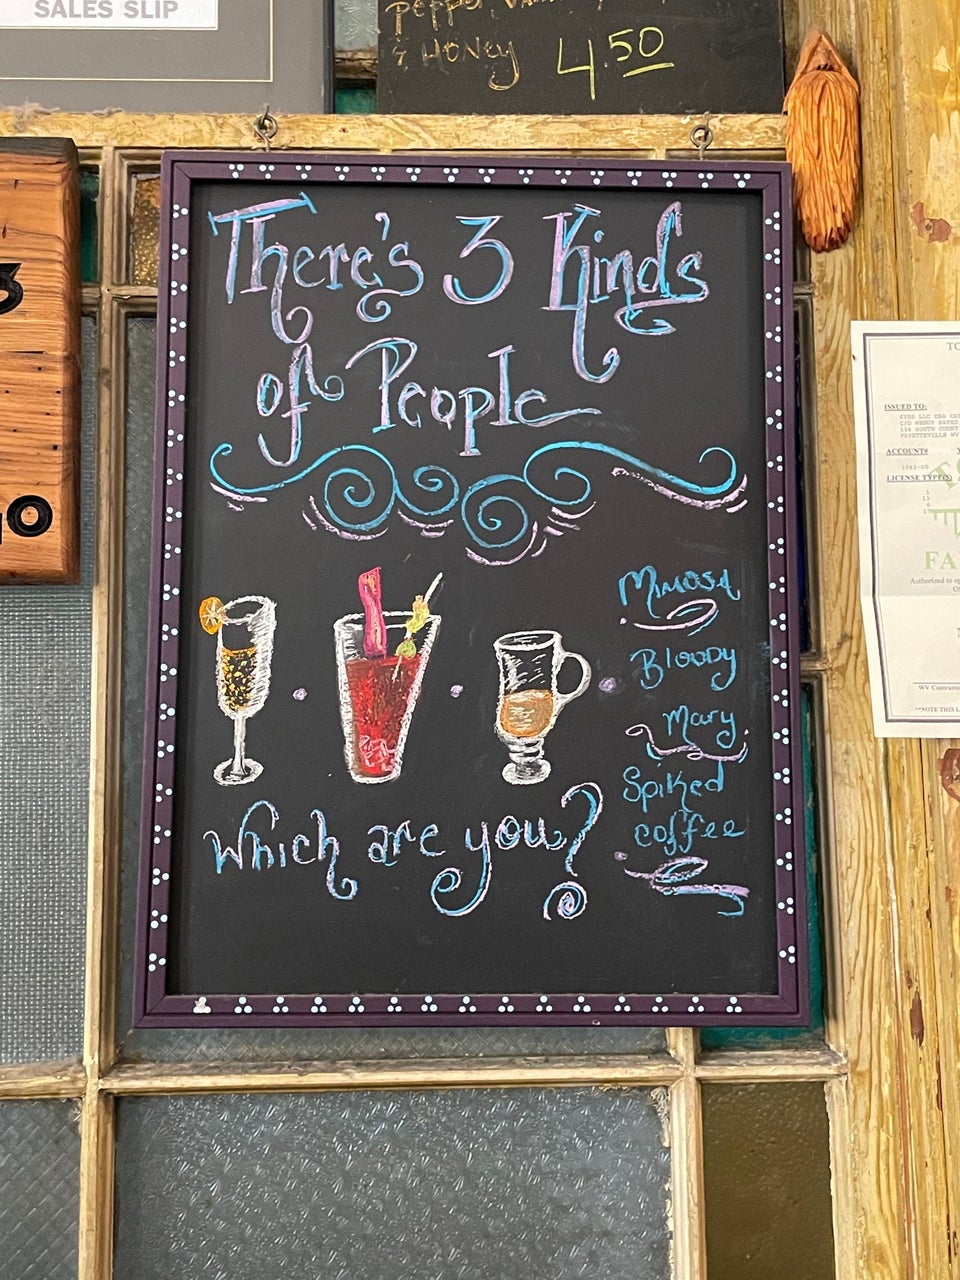 SALES SLIP
& HONEY 4.50
There's 3 Kinds
of People
Mimosa
Bloody
Mary
Spiked
coffee
Which are you?
ISSUED TO:
ACCOUNT#
LICENSE TYPE(S)
FA
Authorized to op
WV Contracto
**NOTE THIS L